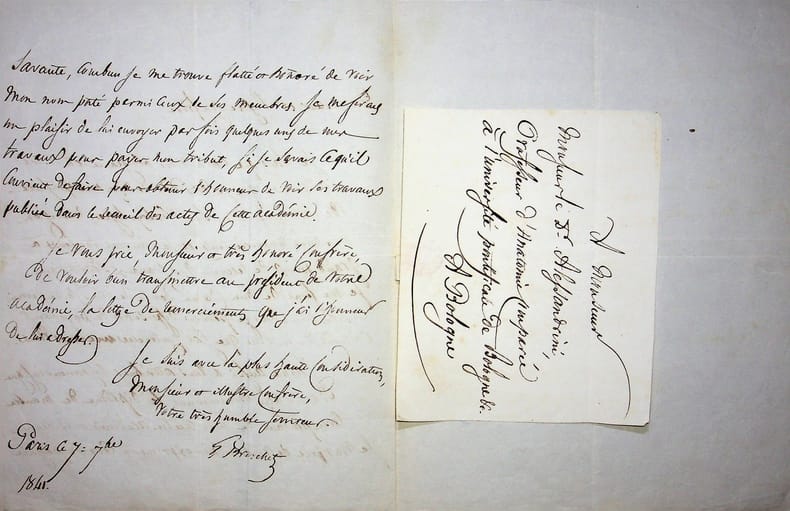 Savante, combien je me trouve flatté et honoré de voir
mon nom porté parmi ceux de ses membres. Je me ferais
un plaisir de lui envoyer par fois quelques uns de mes
travaux pour payer mon tribut, si je savais ce qu'il
convient de faire pour obtenir l'honneur de voir ses travaux
publiés dans le recueil des actes de cette académie.
Je vous prie, Monsieur et très honoré Confrère,
de vouloir bien transmettre au président de votre
académie, la lettre de remerciements que j'ai l'honneur
de lui adresser.
Je suis avec la plus haute considération,
Monsieur et illustre Confrère,
Votre très humble serviteur.
G Breschet
Paris le 7 7bre
1841.
A Monsieur
Monsieur le Dr. Alessandrini
Professeur d'Anatomie comparée
à l'université pontificale de Bologne &c.
A Bologne